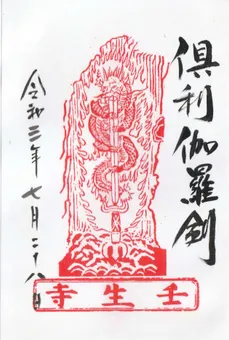 倶利伽羅剣
令和三年七月二十八日
壬生寺